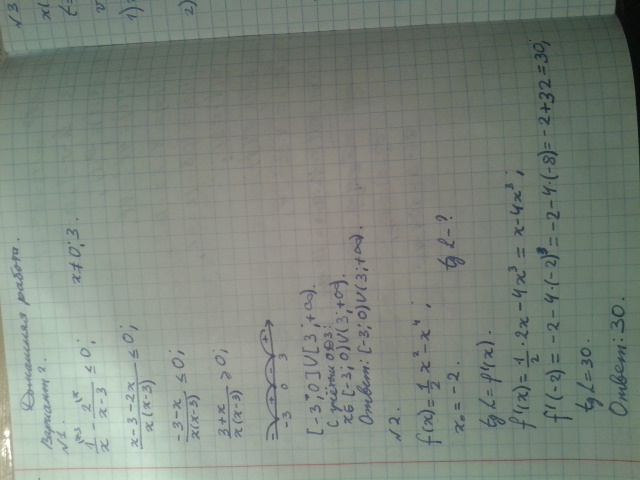 Домашняя работа.
Вариант 2.
№1.
1/x - 2/(x-3) ≤ 0; x≠0; 3.
(x-3-2x)/(x(x-3)) ≤ 0;
(-3-x)/(x(x-3)) ≤ 0;
(3+x)/(x(x-3)) ≥ 0;
-3 0 3
[-3; 0]∪[3; +∞).
С учётом ОДЗ:
x∈[-3; 0)∪(3; +∞).
Ответ: [-3; 0)∪(3; +∞).
№2.
f(x)=1/2 x² - x⁴;
x₀=-2. tg α-?
tg α=f'(x).
f'(x)=1/2·2x-4x³=x-4x³;
f'(-2)=-2-4·(-2)³=-2-4·(-8)=-2+32=30;
tg α-30.
Ответ: 30.
№3
1)
2)